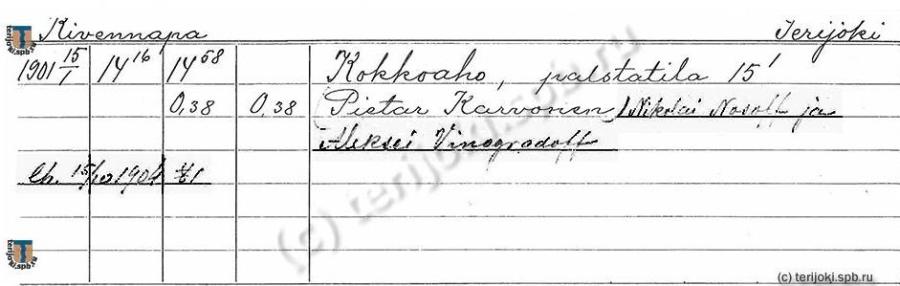 Kivennapa Terijoki
1901 15/1 14 16 14 68 Kokkoaho, palstatila 15 1
0,38 0,38 (Pietar Karvonen) Nikolai Nosoff ja
Aleksei Vinogradoff
15/10 1904 §1
terijoki.spb.ru
terijoki.spb.ru
(c) terijoki.spb.ru
(c) terijoki.spb.ru